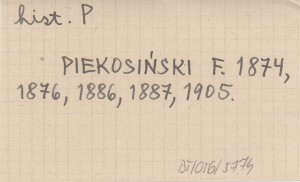 hist. P
PIEKOSIŃSKI F. 1874,
1876, 1886, 1887, 1905.